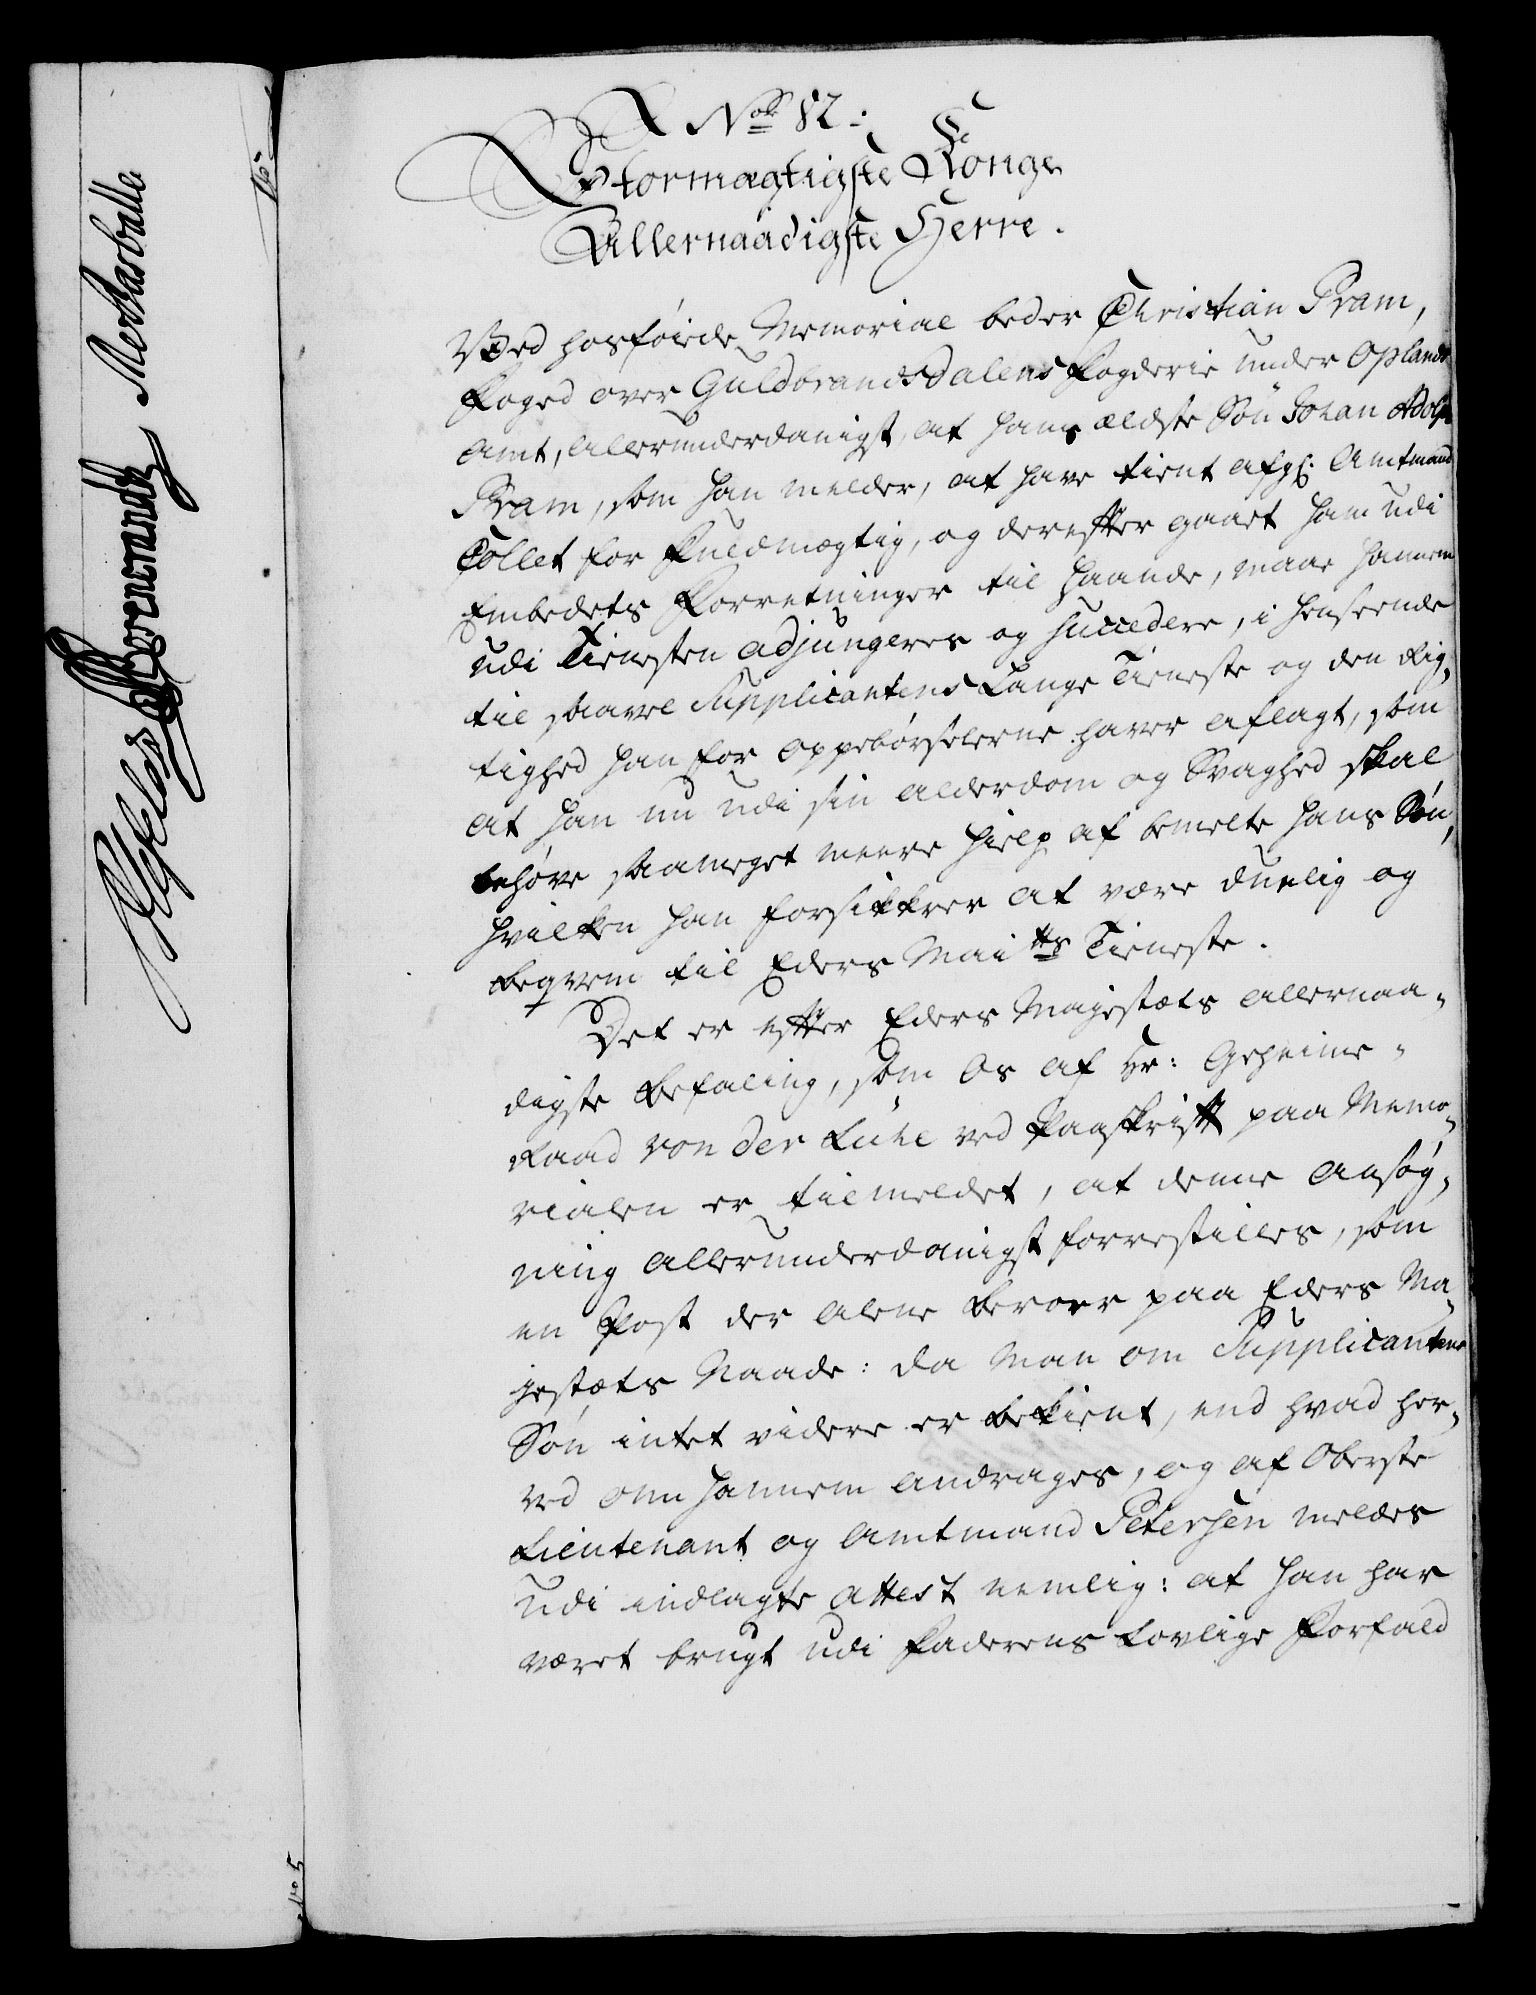 No 82.
Stormægtigste Konge
Allernaadigste Herre.
Ved hosføiede Memorial beder Christian Pram,
Foged over Guldbrandsdalens Fogderie under Oplands
Amt, allerunderdanigst, at hans ældste Søn Johan Adolph
Pram, som han melder, at have tient afg: Amtmand
Collet for Fuldmægtig, og derefter gaaet ham udi
Embedets Forretninger til Haande, maae hannem
udi Tienesten adjungeres og succedere, i henseende
til saavel Supplicantens Lange Tieneste og den Rig-
tighed han for oppebørselerne haver aflagt, som
at han nu udi sin alderdom og Svaghed skal
behøve saameget meere Hielp af bemelte hans Søn,
hvilken han forsikkrer at være duelig og
beqvem til Eders Maitts Tieneste.
Det er efter Eders Majestæts allernaa-
digste Befaling, som Os af Hr: Geheime-
Raad von der Lühe ved Paaskrift paa Memo-
rialen er tilmeldet, at denne Ansøg-
ning allerunderdanigst forrestilles, som
en Post der alene beroer paa Eders Ma-
jestæts Naade: da Man om Supplicantens
Søn intet videre er bekient, end hvad her-
ved om hannem andrages, og af Oberste
Lieutenant og Amtmand Petersen meldes
udi indlagte Attest nemlig: at han har
været brugt udi Faderens Lovlige Forfald